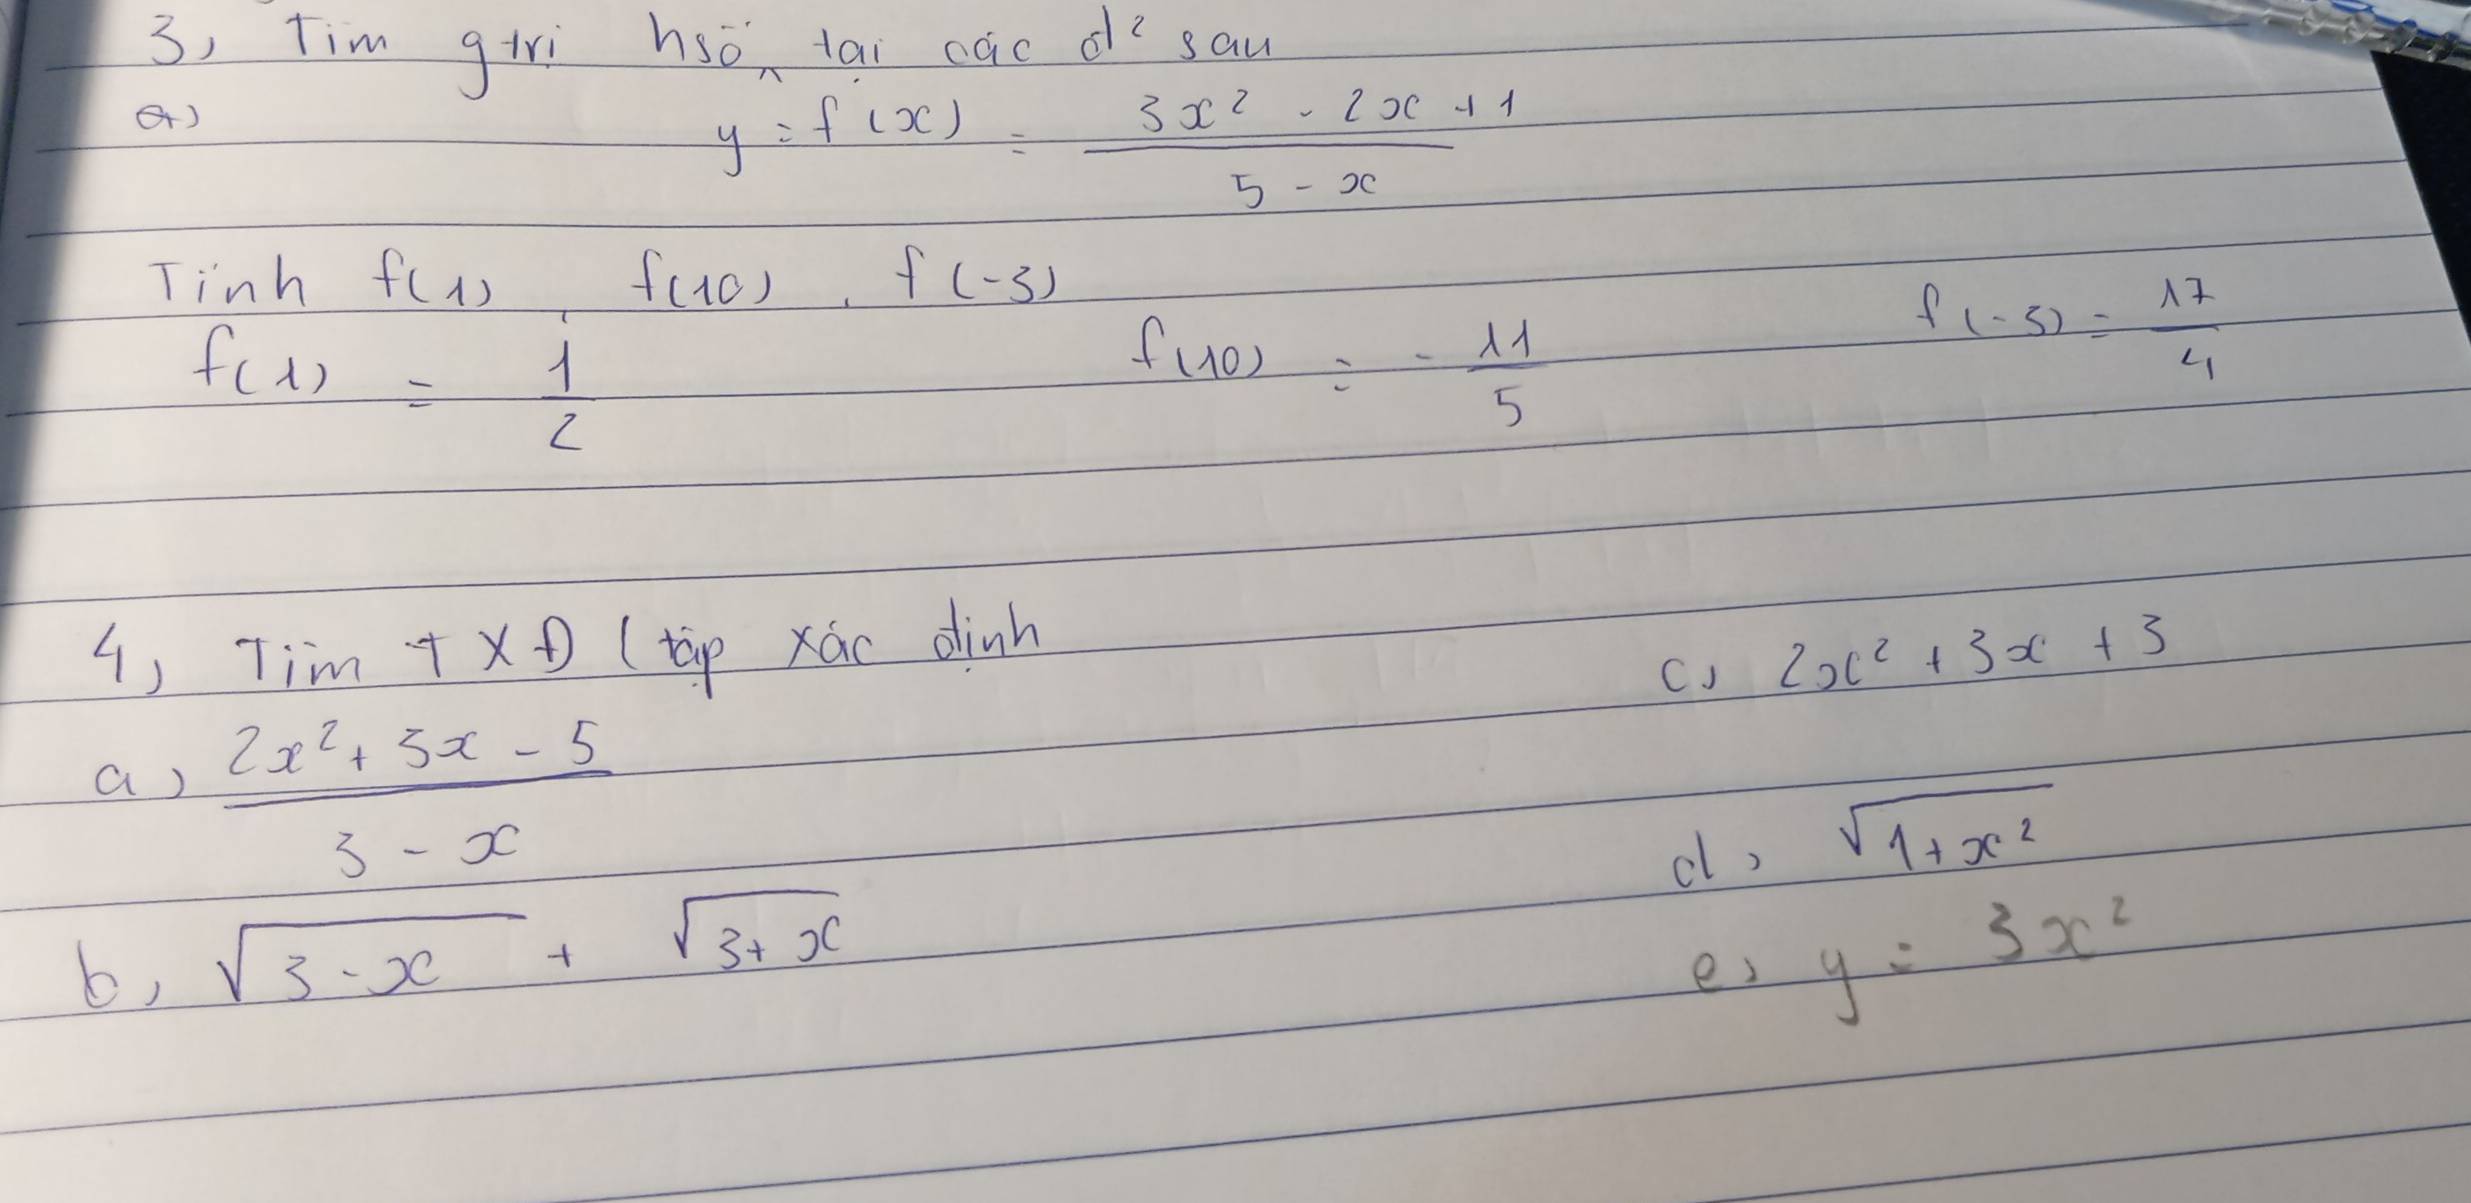 3, Tìm gtrị hsố tại các đ² sau
a) y = f(x) = (3x² - 2x + 1)/(5 - x)
Tính f(1), f(10), f(-3)
f(1) = 1/2 f(10) = - 11/5 f(-3) = 17/4
4, Tìm TXĐ (tập xác định
a, (2x² + 3x - 5)/(3 - x)
b, √(3 - x) + √(3 + x)
c, 2x² + 3x + 3
d, √(1 + x²)
e, y = 3x²